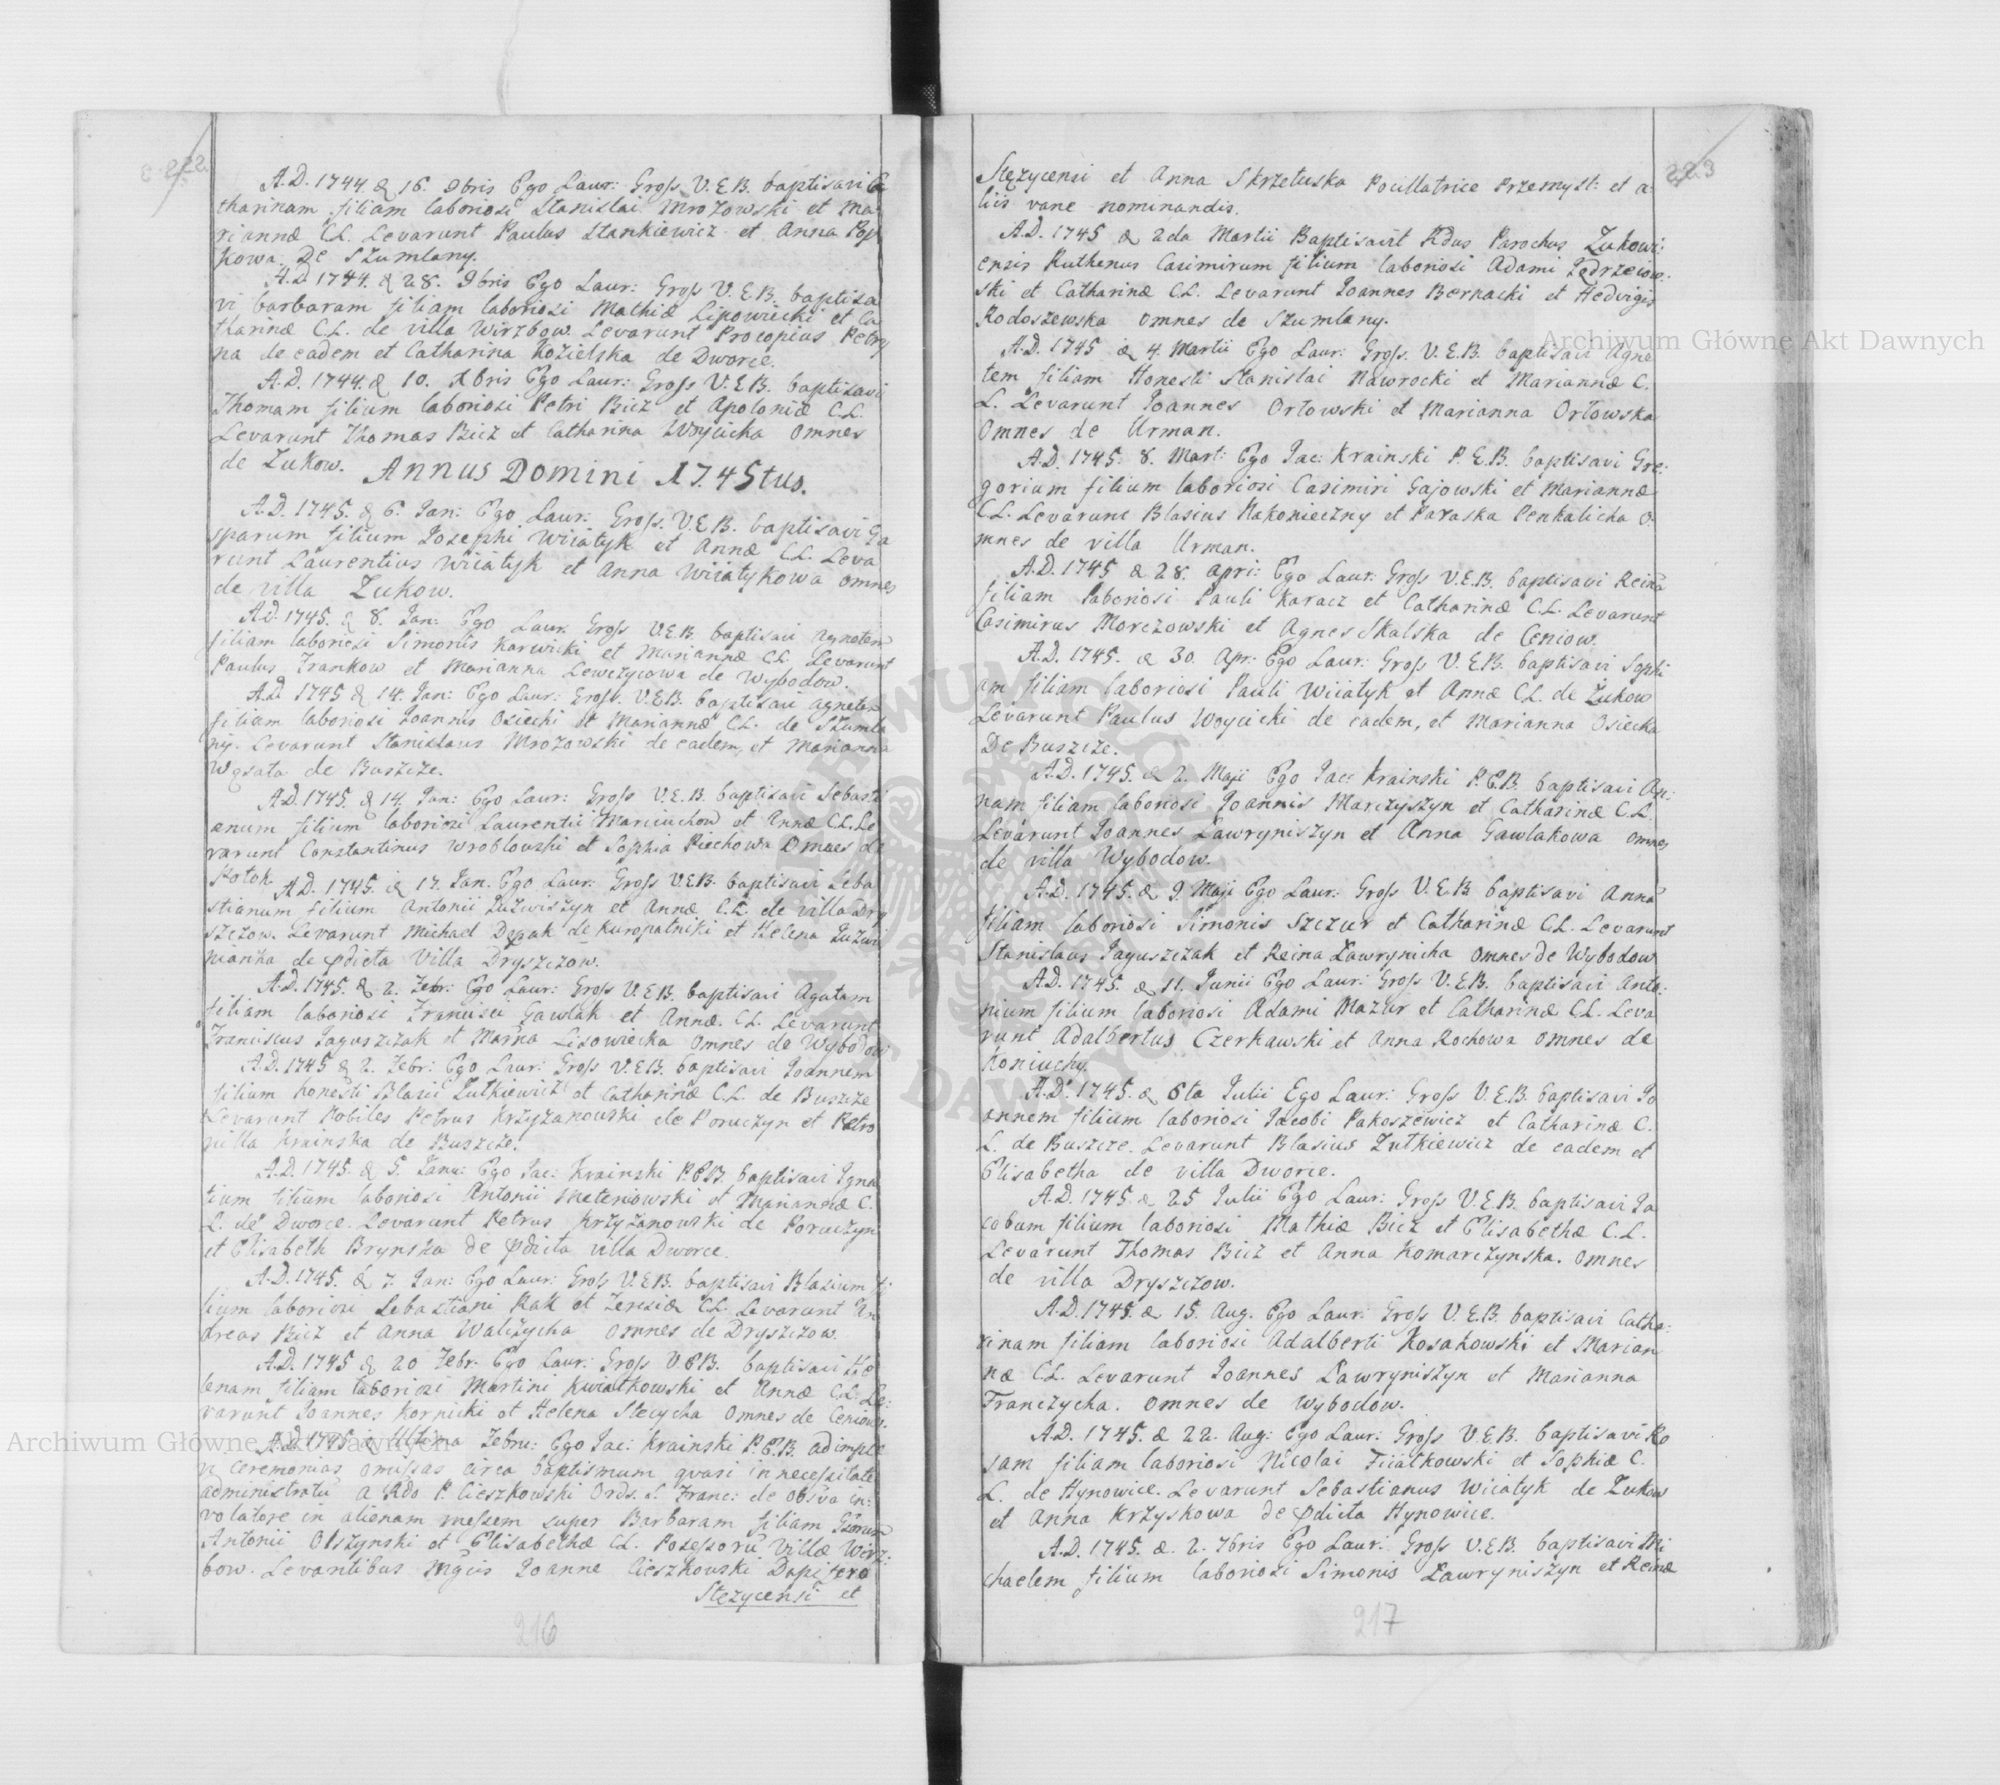 222
A.D. 1744. d 16. 9bris Ego Laur: Gross V.E.B. baptisavi Ca
tharinam filiam laboriosi Stanislai Mrozowski et Ma
riannæ C.L. Levarunt Paulus Stankiewicz et Anna Pop
kowa de Szumlany.
A.D. 1744. d 28. 9bris Ego Laur: Gross V.E.B. baptisa
vi barbaram filiam laboriosi Mathiæ Lipowiecki et Ca
tharinæ C.L. de villa Wirzbow. Levarunt Procopius Petry
na de eadem et Catharina Kozielska de Dworce.
A.D. 1744. d 10. Xbris Ego Laur: Gross V.E.B. baptisavi
Thomam filium laboriosi Petri Bicz et Apoloniæ C.L.
Levarunt Thomas Bicz et Catharina Woycicka omnes
de Zukow.
Annus Domini 1745tus.
A.D. 1745. d 6. Jan: Ego Laur: Gross. V.E.B. baptisavi Ga
sparum filium Josephi Wiiatyk et Annæ C.L. Leva
runt Laurentius Wiiatyk et Anna Wiiatykowa omnes
de villa Zukow.
A.D. 1745. d 8. Jan: Ego Laur. Gross V.E.B. baptisavi Agnetem
filiam laboriosi Simonis Karwicki et Mariannæ C.L. Levarunt
Paulus Frankow et Marianna Lewczycowa de Wybodow.
A.D. 1745 d 14. Jan: Ego Laur: Gross. V.E.B. baptisavi Agnetem
filiam laboriosi Joannis Osiecki et Mariannæ C.L. de Szumla
ny. Levarunt Stanislaus Mrozowski de eadem, et Marianna
Wąsata de Buszcze.
A.D. 1745. d 14. Jan: Ego Laur: Gross V.E.B. baptisavi Sebasti
anum filium laboriosi Laurentii Marciuchow et Annæ C.L. Le
varunt Constantinus Wroblowski et Sophia Piechowa omnes de
Potok.
A.D. 1745. d 17. Jan. Ego Laur: Gross V.E.B. baptisavi Seba
stianum filium Antonii Juzwiszyn et Annæ C.L. de villa Dry
szczow. Levarunt Michael Dęzuk de Kuropatniki et Helena Juzwi
nianka de pdicta villa Dryszczow.
A.D. 1745. d 2. Febr: Ego Laur: Gross V.E.B. baptisavi Agatam
filiam laboriosi Francisci Gawlak et Annæ. C.L. Levarunt
Franciscus Jaguszczak et Marina Lisowiecka omnes de Wybodow
A.D. 1745 d 2. Febr: Ego Laur: Gross V.E.B. baptisavi Joannem
filium honesti Blasii Lutkiewicz et Catharinæ C.L. de Buszcze
Levarunt Nobiles Petrus Krzyzanowski de Poruczyn et Petro
nilla Krainska de Buszcze.
A.D. 1745 d 5. Janu: Ego Jac: Krainski P.E.B. baptisavi Igna
tium filium laboriosi Antonii Meteniowski et Mariannæ C.
L. de Dworce. Levarunt Petrus Krzyzanowski de Poruczyn
et Elisabeth Brynska de pdicta villa Dworce.
A.D. 1745. d 7. Jan: Ego Laur: Gross V.E.B. baptisavi Blasium fi
lium laboriosi Sebastiani Rak et Teresiæ C.L. Levarunt An
dreas Bicz et Anna Walczycha omnes de Dryszczow.
A.D. 1745 d 20 Febr. Ego Laur: Gross V.E.B. baptisavi He
lenam filiam laboriosi Martini Kwiatkowski et Annæ C.L. Le:
varunt Joannes Kornicki et Helena Stecycha omnes de Ceniow.
A.D. 1745 d Ultima Febru: Ego Jac: Krainski P.E.B. adimple
vi ceremonias omissas circa baptismum quasi in necessitate
administratu a Rdo P. Cieszkowski Ords. S. Franc: de obsva in:
volatore in alienam messem super Barbaram filiam Gsorum
Antonii Olszynski et Elisabethæ C.L. Possessoru Villæ Wirz:
bow. Levantibus Mgcis Joanne Cieszkowski Dapifero
Stezycensi et
216
223
Stęzycensi et Anna Skrzetuska Pocillatrice Przemysl: et a:
liis vane nominandis.
A.D. 1745 d 2da Martii Baptisavit Rdus Parochus Zukowi:
ensis Ruthenus Casimirum filium laboriosi Adami Jędrzeiow:
ski et Catharinæ C.L. Levarunt Joannes Bernacki et Hedvigis
Rodoszewska omnes de Szumlany.
A.D. 1745 d 4. Martii Ego Laur: Gross. V.E.B. baptisavi Agne
tem filiam Honesti Stanislai Nawrocki et Mariannæ C.
L. Levarunt Joannes Orłowski et Marianna Orłowska
omnes de Urman.
A.D. 1745. 8. Mart: Ego Jac: Krainski P.E.B. baptisavi Gre:
gorium filium laboriosi Casimiri Gajowski et Mariannæ
C.L. Levarunt Blasius Nakonieczny et Paraska Penkalicha o:
mnes de villa Urman.
A.D. 1745 d 28. Apri: Ego Laur: Gross V.E.B. baptisavi Reinā
filiam laboriosi Pauli Karacz et Catharinæ C.L. Levarunt
Casimirus Morczowski et Agnes Skalska de Ceniow.
A.D. 1745. d 30. Apr: Ego Laur: Gross V.E.B. baptisavi Sophi
am filiam laboriosi Pauli Wiiatyk et Annæ C.L. de Zukow
Levarunt Paulus Woycicki de eadem, et Marianna Osiecka
De Buszcze.
A.D. 1745. d 2. Maji Ego Jac: Krainski P.E.B. baptisavi An:
nam filiam laboriosi Joannis Marczyszyn et Catharinæ C.L.
Levarunt Joannes Lawryniszyn et Anna Gawlakowa omnes
de villa Wybodow.
A.D. 1745. d 9. Maji Ego Laur: Gross V.E.B baptisavi Annā
filiam laboriosi Simonis Szczur et Catharinæ C.L. Levarunt
Stanislaus Jaguszczak et Reina Lawrynicha omnes de Wybodow
A.D. 1745. d 11. Junii Ego Laur: Gross V.E.B. baptisavi Anto:
nium filium laboriosi Adami Mazur et Catharinæ C.L. Leva
runt Adalbertus Czerkawski et Anna Rochowa omnes de
Koniuchy.
A.D. 1745. d 6ta Julii Ego Laur: Gross V.E.B. baptisavi Jo
annem filium laboriosi Jacobi Pakoszewicz et Catharinæ C.
L. de Buszcze. Levarunt Blasius Lutkiewicz de eadem et
Elisabetha de villa Dworce.
A.D. 1745. d. 25 Julii Ego Laur: Gross V.E.B. baptisavi Ja
cobum filium laboriosi Mathiæ Bicz et Elisabethæ C.L.
Levarunt Thomas Bicz et Anna Komarczynska. omnes
de villa Dryszczow.
A.D. 1745. d 15. Aug. Ego Laur: Gross V.E.B. baptisavi Catha:
rinam filiam laboriosi Adalberti Kosakowski et Marian
næ C.L. Levarunt Joannes Lawryniszyn et Marianna
Franczycha. omnes de Wybodow.
A.D. 1745. d 22. Aug: Ego Laur: Gross V.E.B. baptisavi Ro
sam filiam laboriosi Nicolai Fiiałkowski et Sophiæ C.
L. de Hynowice. Levarunt Sebastianus Wiiatyk de Zukow
et Anna Krzyskowa de pdicta Hynowice.
A.D. 1745. d. 2. 7bris Ego Laur: Gross V.E.B. baptisavi Mi
chaelem filium laboriosi Simonis Lawryniszyn et Reinæ
217
Archiwum Główne Akt Dawnych
Archiwum Główne Akt Dawnych